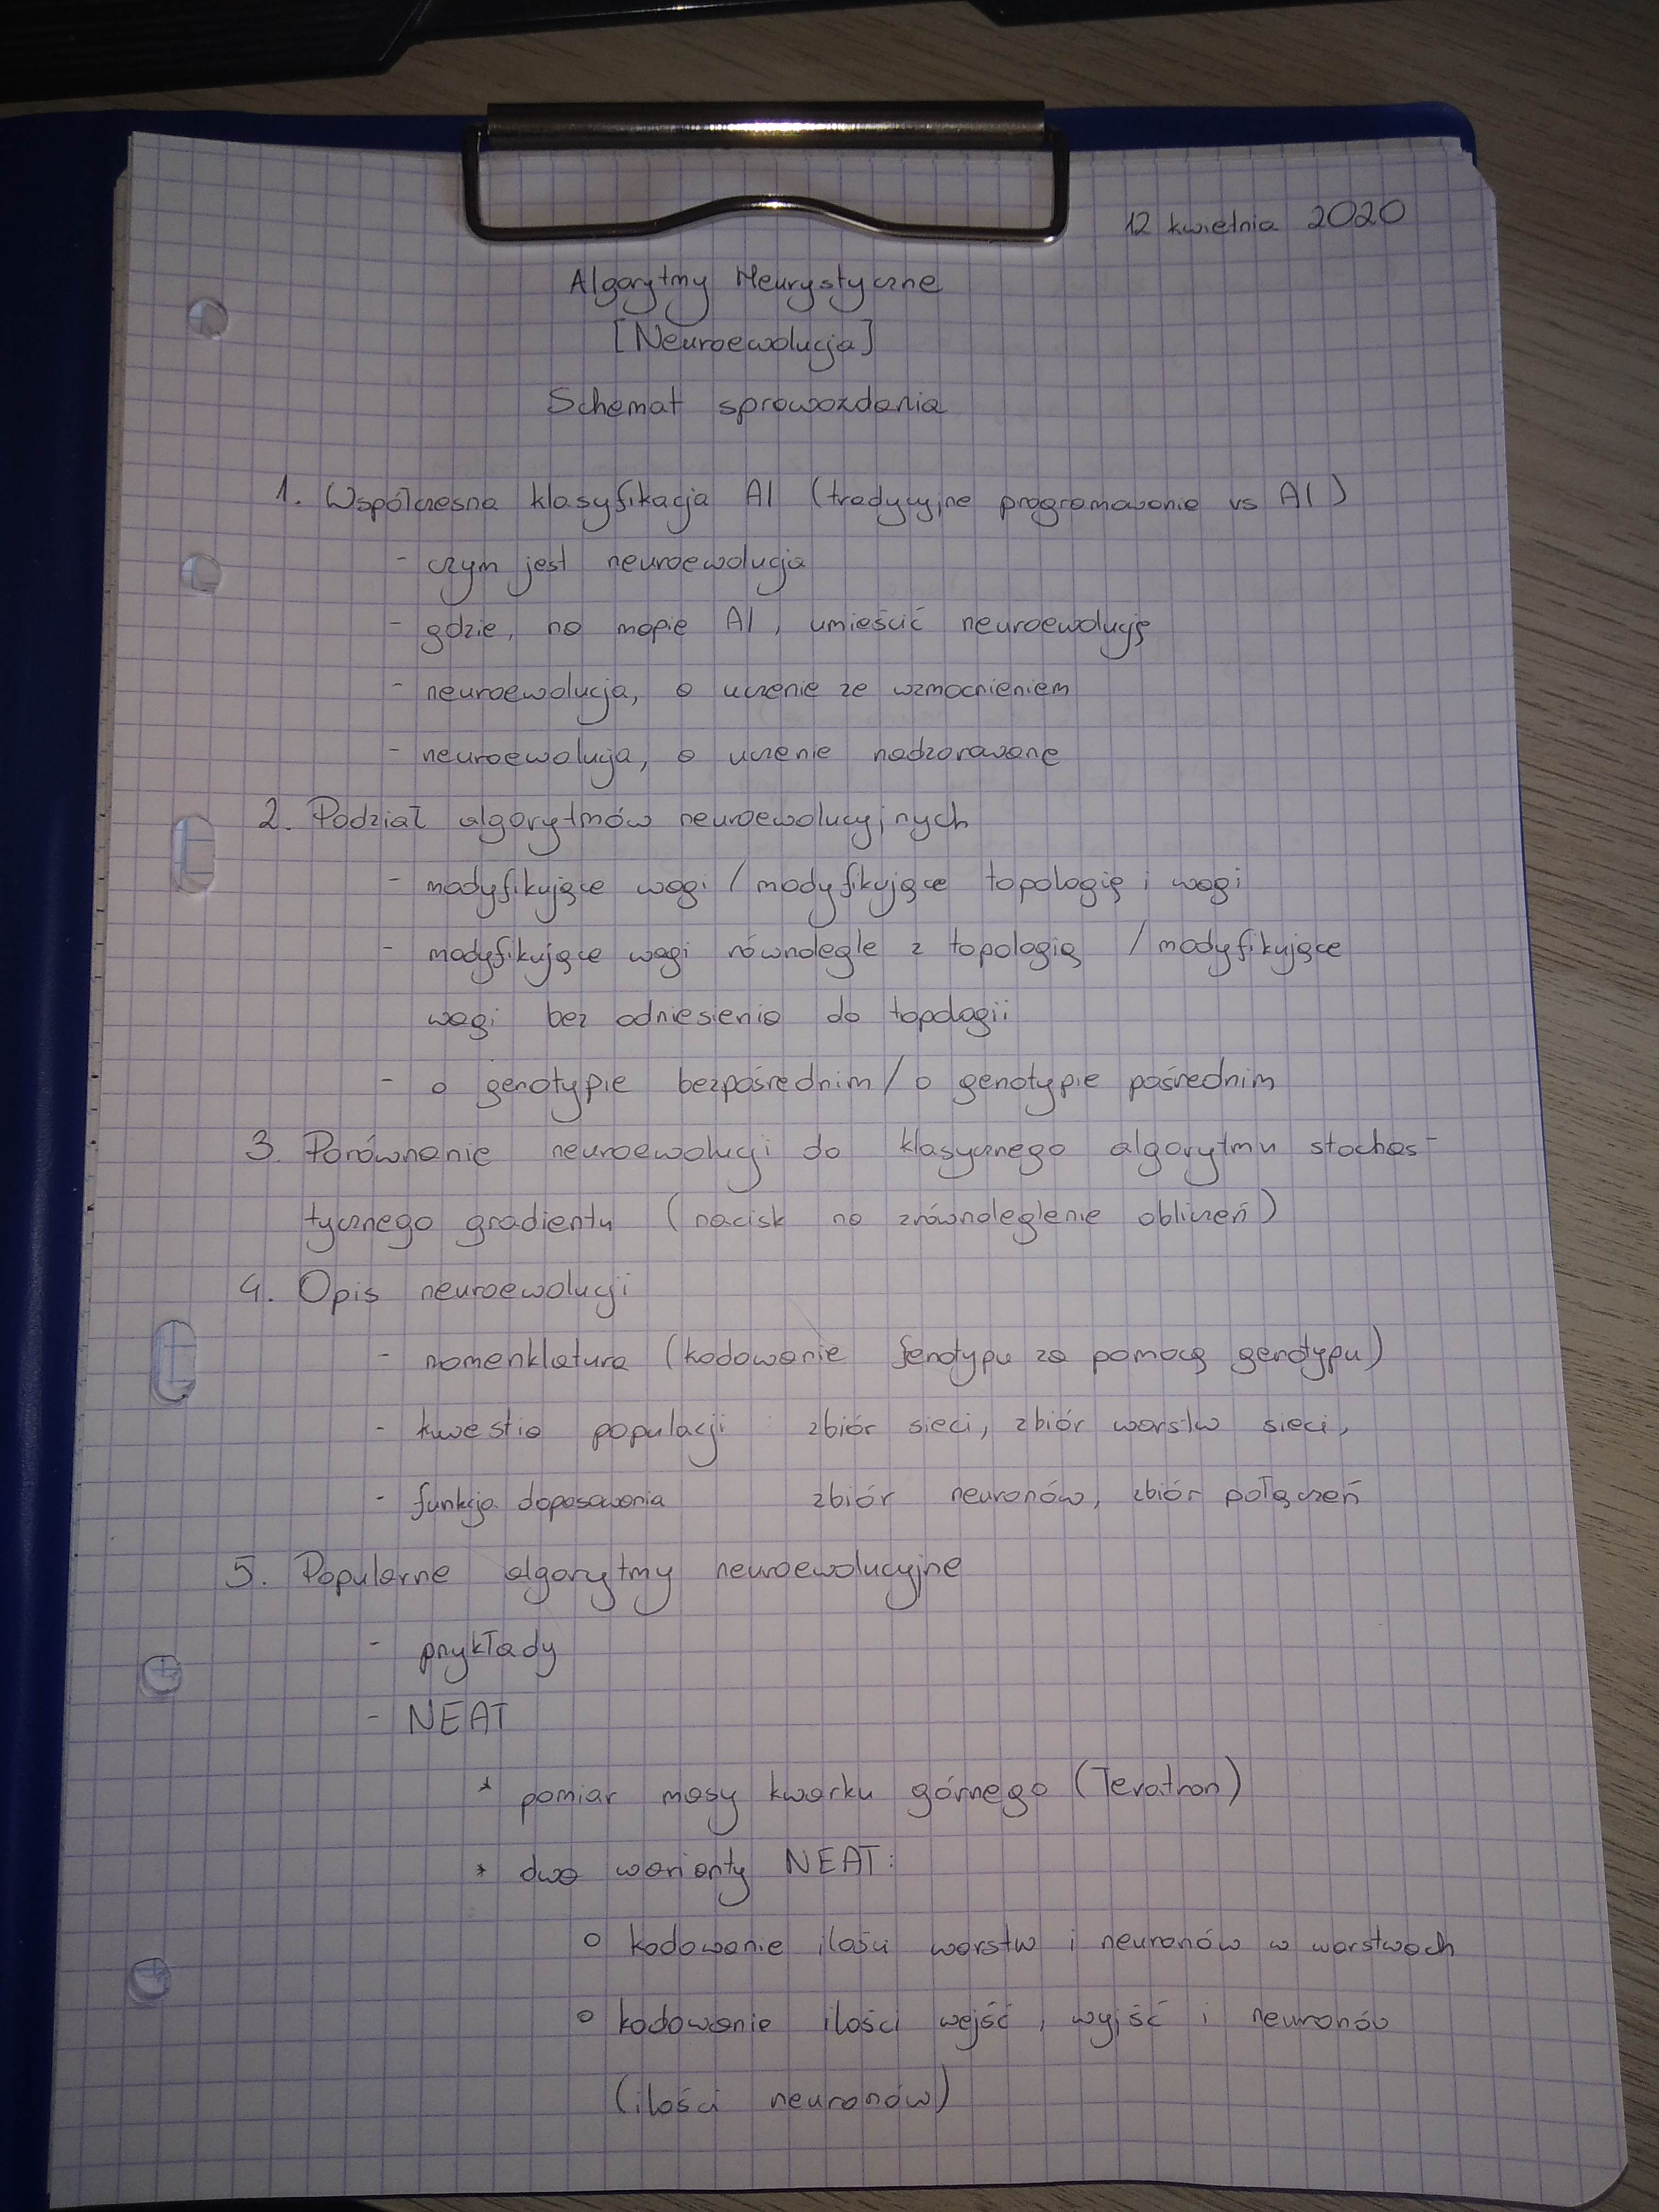 12 kwietnia 2020
Algorytmy Heurystyczne
[Neuroewolucja]
Schemat sprawozdania
1. Współczesna klasyfikacja AI (tradycyjne programowanie vs AI)
- czym jest neuroewolucja
- gdzie, na mapie AI, umieścić neuroewolucję
- neuroewolucja, a uczenie ze wzmocnieniem
- neuroewolucja, a uczenie nadzorowane
2. Podział algorytmów neuroewolucyjnych
- modyfikujące wagi / modyfikujące topologię i wagi
- modyfikujące wagi równolegle z topologią / modyfikujące
wagi bez odniesienia do topologii
- o genotypie bezpośrednim / o genotypie pośrednim
3. Porównanie neuroewolucji do klasycznego algorytmu stochas-
tycznego gradientu (nacisk na zrównoleglenie obliczeń)
4. Opis neuroewolucji
- nomenklatura (kodowanie fenotypu za pomocą genotypu)
- kwestia populacji zbiór sieci, zbiór warstw sieci,
- funkcja dopasowania zbiór neuronów, zbiór połączeń
5. Popularne algorytmy neuroewolucyjne
- przykłady
- NEAT
* pomiar masy kwarku górnego (Tevatron)
* dwa warianty NEAT:
o kodowanie ilości warstw i neuronów w warstwach
o kodowanie ilości wejść, wyjść i neuronów
(ilości neuronów)